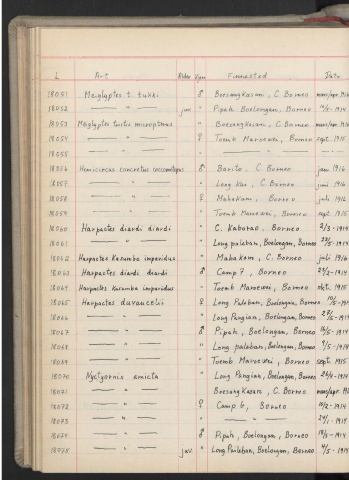 L Art Alder Kjøn Finnested Dato
18051 Meiglyptes t. tukki ♂ Boesangkasani, C. Borneo mars/apr. 1916
18052 — " — juv. " Pipah, Boelongan, Borneo 1914
18053 Meiglyptes tristis micropterus " Boesangkasani, C. Borneo mars/apr. 1916
18054 — " — ♀ Toemb. Maroewei, Borneo sept. 1915
18055 — " — " — " —
18056 Hemicircus concretus coccometopus ♂ Barito, C. Borneo jan. 1916
18057 — " — " Long Kai, C. Borneo juni 1916
18058 — " — ♀ Mahakam, Borneo juli 1916
18059 — " — " Toemb. Maroewei, Borneo sept. 1915
18060 Harpactes diardi diardi " C. Kaborao, Borneo 2/3 - 1914
18061 — " — " Long paleban, Boelongan, Borneo 1914
18062 Harpactes Kasumba impavidus " Mahakam, C. Borneo juli 1916
18063 Harpactes diardi diardi ♂ Camp 7, Borneo 1914
18064 Harpactes Kasumba impavidus " Toemb Maroewei, Borneo okt. 1915
18065 Harpactes duvaucelii ♀ Long Paleban, Boelongan, Borneo 10/5 - 1914
18066 — " — " Long Pangian, Boelongan, Borneo 1914
18067 — " — ♂ Pipah, Boelongan, Borneo 1914
18068 — " — " Long paleban, Boelongan, Borneo 9/5 - 1914
18069 — " — " Toemb Maroewei, Borneo sept. 1915
18070 Nyctyornis amicta " Long Pangian, Boelongan, Borneo 1914
18071 — " — Boesang Kasani, C. Borneo mars/apr. 1916
18072 — " — ♀ Camp 6, Borneo 1914
18073 — " — " — " — 24/1 - 1914
18074 — " — ♂ Pipah, Boelongan, Borneo 1914
18075 — " — juv. " Long Paleban, Boelongan, Borneo 4/5 - 1914